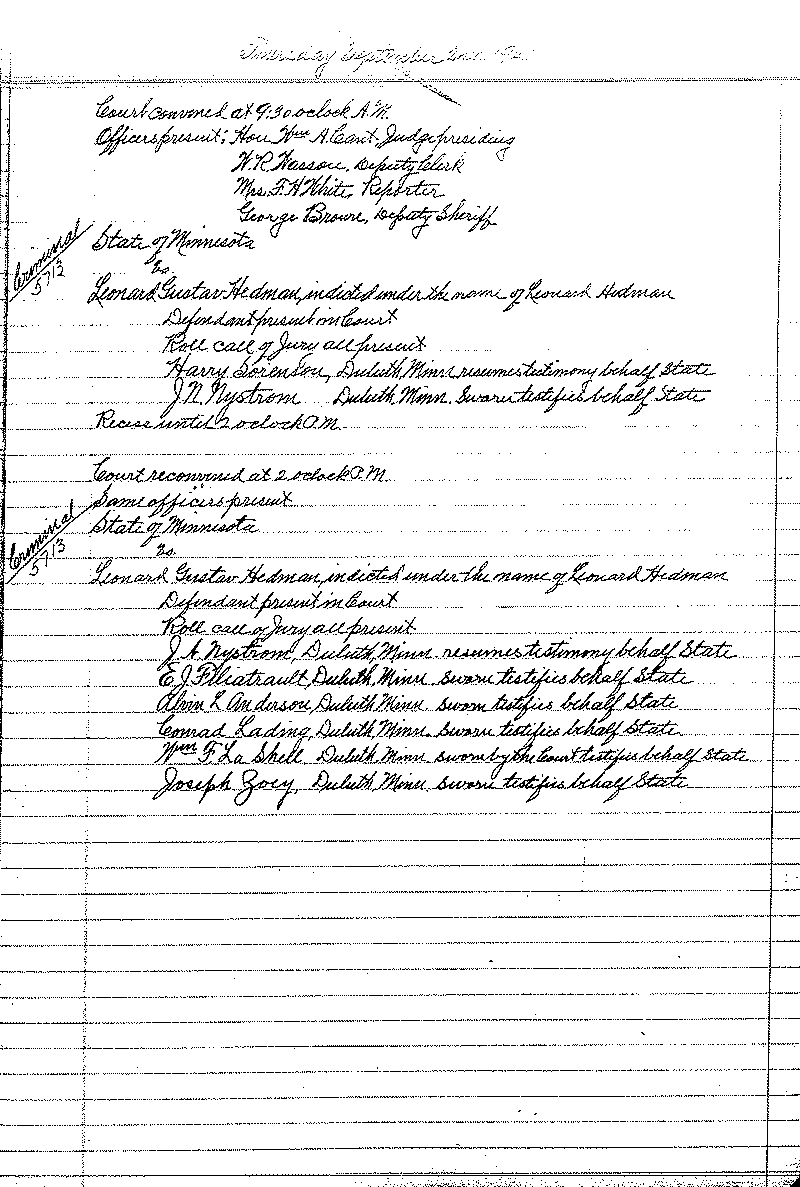 Thursday September 2nd
Court convened at 9:30 oclock A.M.
Officers present: Hon Wm A. Cant, Judge presiding
W.R. Wasson, Deputy Clerk
Mrs. F.H. White, Reporter
George Browe, Deputy Sheriff
Criminal
5713
State of Minnesota
vs.
Leonard Gustav Hedman, indicted under the name of Leonard Hedman
Defendant present in Court
Roll call of Jury all present
Harry Sorenson, Duluth, Minn. resumes testimony behalf State
J. N. Nystrom Duluth, Minn. Sworn testifies behalf State
Recess until 2 oclock P.M.
Court reconvened at 2 oclock P.M.
Same officers present
Criminal
5713
State of Minnesota
vs.
Leonard Gustav Hedman, indicted under the name of Leonard Hedman
Defendant present in Court
Roll call of Jury all present
J. A. Nystrom, Duluth, Minn. resumes testimony behalf State
E J Filiatrault, Duluth, Minn. sworn testifies behalf State
Alvin L Anderson, Duluth Minn. sworn testifies behalf State
Conrad Lading, Duluth, Minn. Sworn testifies behalf State
Wm F La Shell Duluth Minn sworn by the Court testifies behalf State
Joseph Zoey, Duluth, Minn sworn testifies behalf State